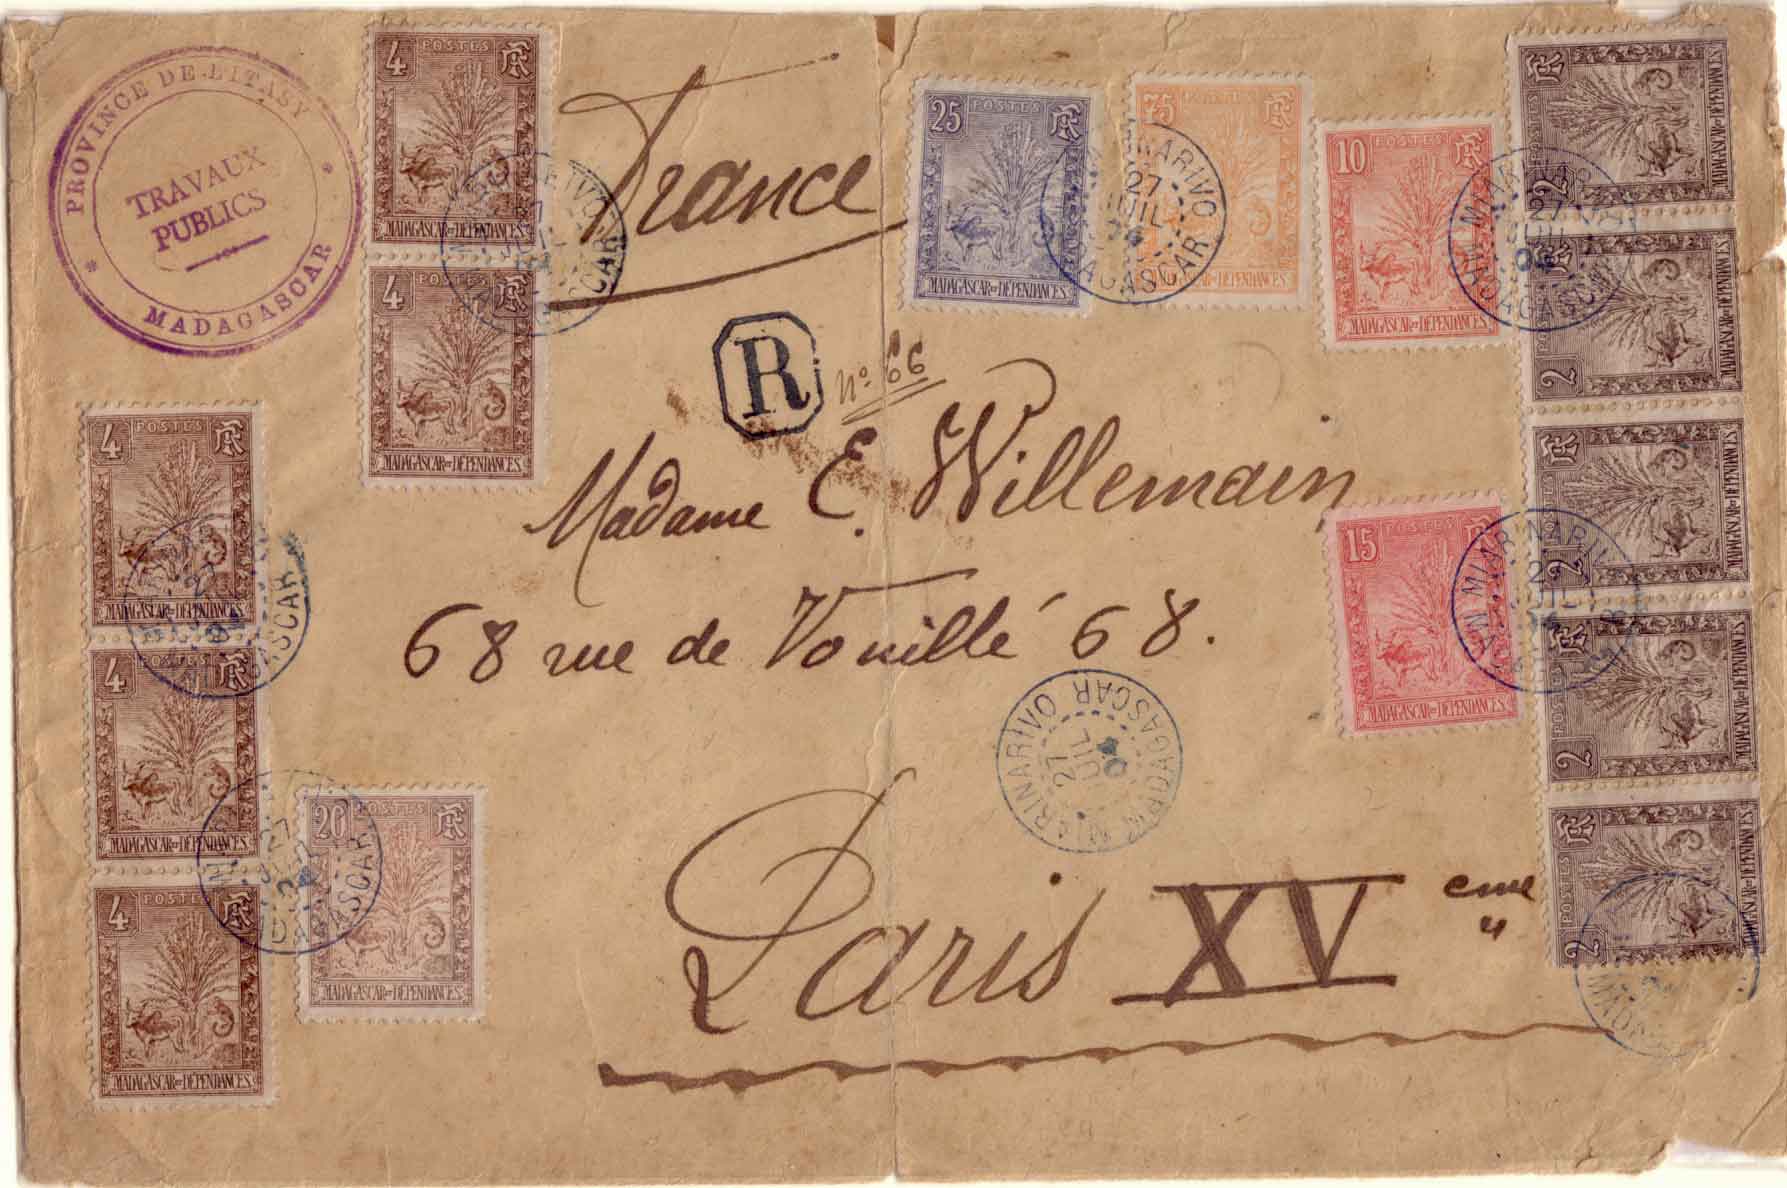 PROVINCE DE L'ITASY
TRAVAUX
PUBLICS
* MADAGASCAR *
France
R
Nº 66
Madame E. Willemain
68 rue de Vouillé 68.
Paris XV eme
4 POSTES RF
MADAGASCAR ET DÉPENDANCES
4 POSTES RF
MADAGASCAR ET DÉPENDANCES
4 POSTES RF
MADAGASCAR ET DÉPENDANCES
4 POSTES RF
MADAGASCAR ET DÉPENDANCES
4 POSTES RF
MADAGASCAR ET DÉPENDANCES
20 POSTES RF
MADAGASCAR ET DÉPENDANCES
25 POSTES RF
MADAGASCAR ET DÉPENDANCES
75 POSTES RF
10 POSTES RF
MADAGASCAR ET DÉPENDANCES
15 POSTES RF
MADAGASCAR ET DÉPENDANCES
2 POSTES RF
MADAGASCAR ET DÉPENDANCES
2 POSTES RF
MADAGASCAR ET DÉPENDANCES
2 POSTES RF
MADAGASCAR ET DÉPENDANCES
2 POSTES RF
MADAGASCAR ET DÉPENDANCES
2 POSTES RF
MADAGASCAR ET DÉPENDANCES
MIARINARIVO
27
JUIL
04
MADAGASCAR